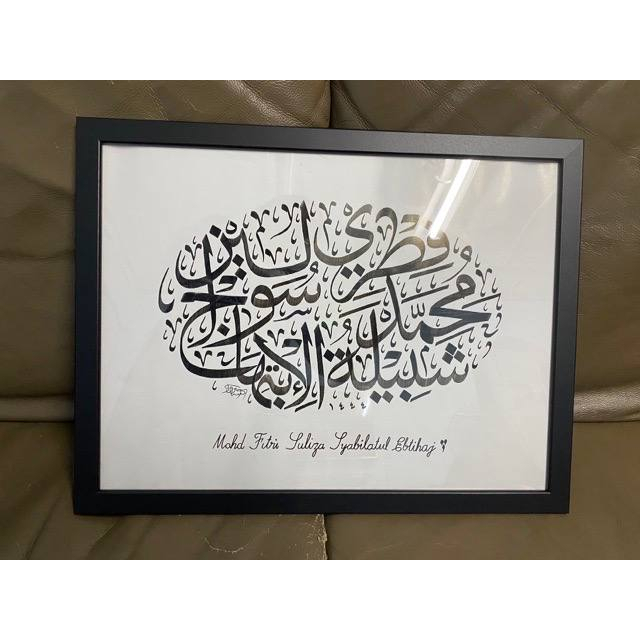 مُحَمَّد فِطْرِي سُوليزا
شَبِيلَةُ الإِبْتِهَاج
Mohd Fitri Suliza Syabilatul Ebtihaj